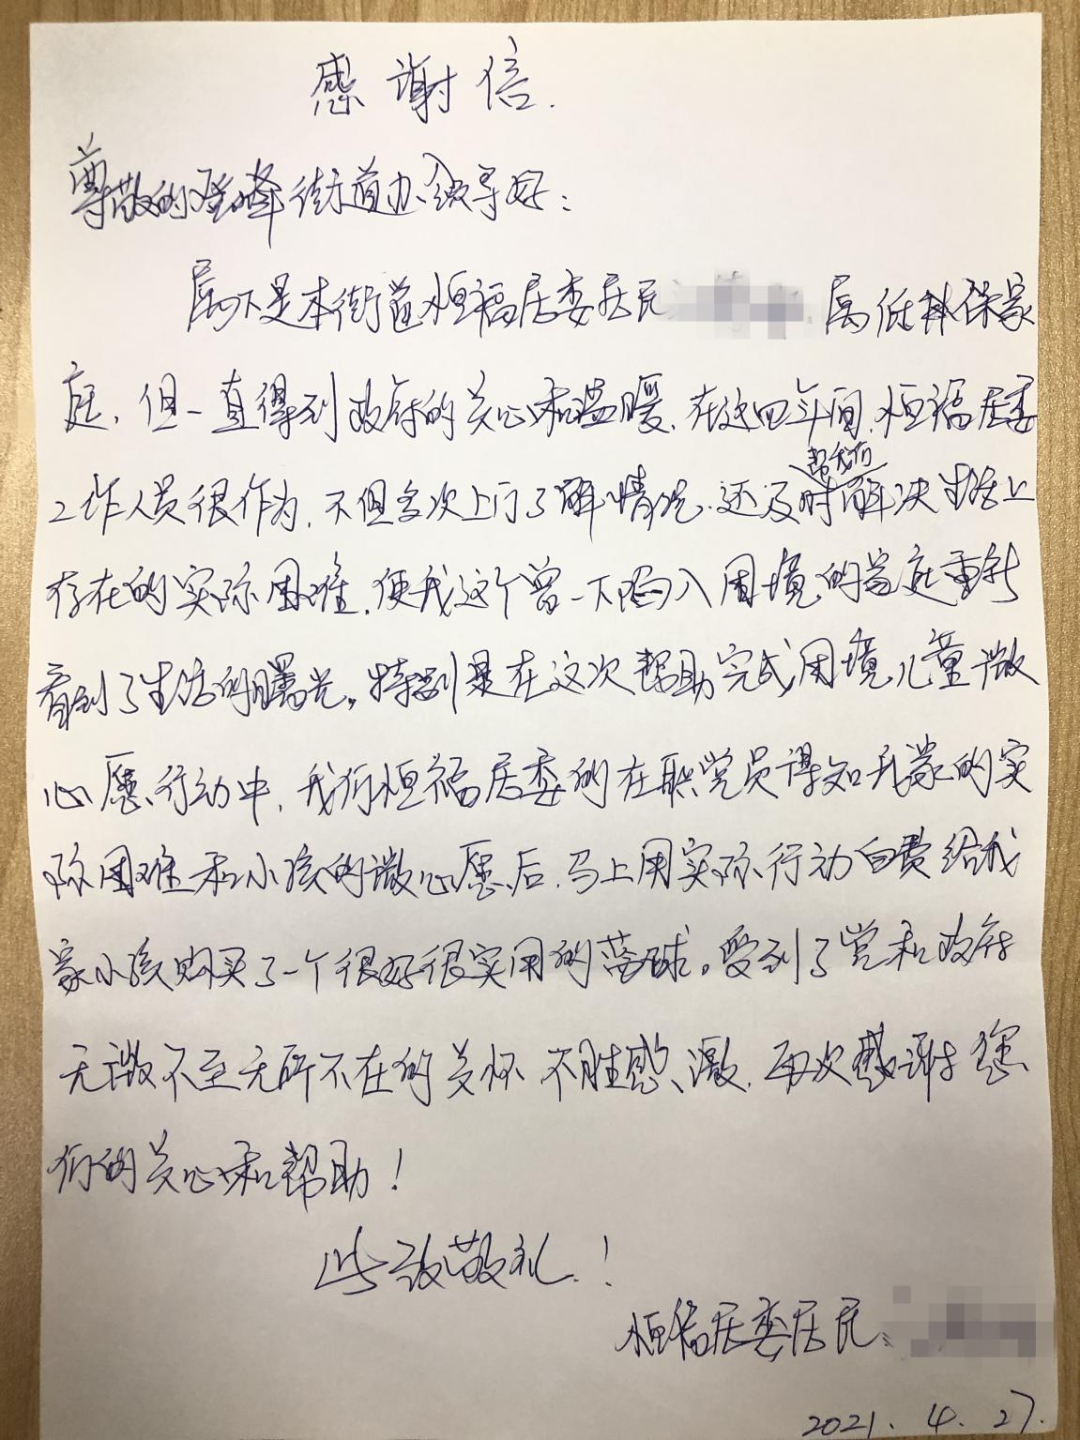 感谢信.
尊敬的登峰街道办领导好:
属下是本街道恒福居委居民 属低保家
庭,但一直得到政府的关心和温暖.在这四年间,恒福居委
帮我们
工作人员很作为,不但多次上门了解情况.还及时解决生活上
存在的实际困难,使我这个曾一下陷入困境的家庭重新
看到了生活的曙光。特别是在这次帮助完成困境儿童微
心愿行动中,我们恒福居委的在职党员得知我家的实
际困难和小孩的微心愿后,马上用实际行动自费给我
家小孩购买了一个很好很实用的蓝球。受到了党和政府
无微不至无所不在的关怀 不胜感激.再次感谢您
们的关心和帮助!
此致敬礼!
恒福居委居民
2021.4.27.